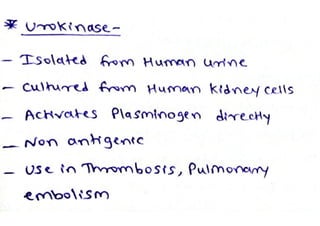 * Urokinase-
- Isolated from Human urine
- Cultured from Human Kidney cells
- Activates Plasminogen directly
- Non antigenic
- Use in Thrombosis, Pulmonary
embolism